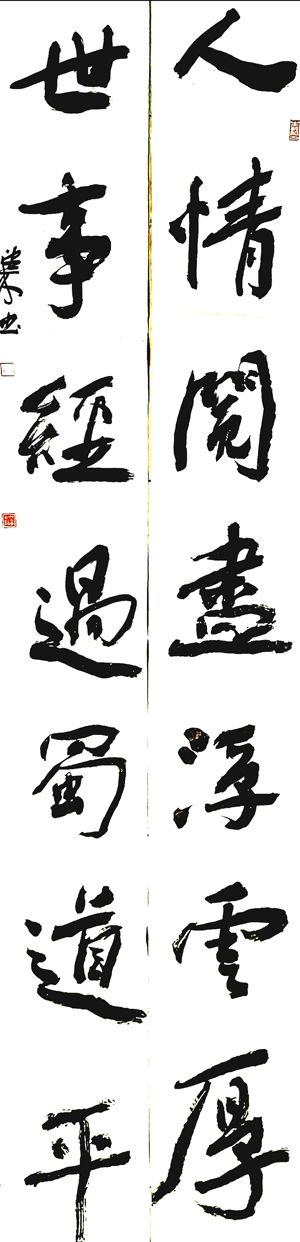 人情閱盡浮雲厚
世事經過蜀道平